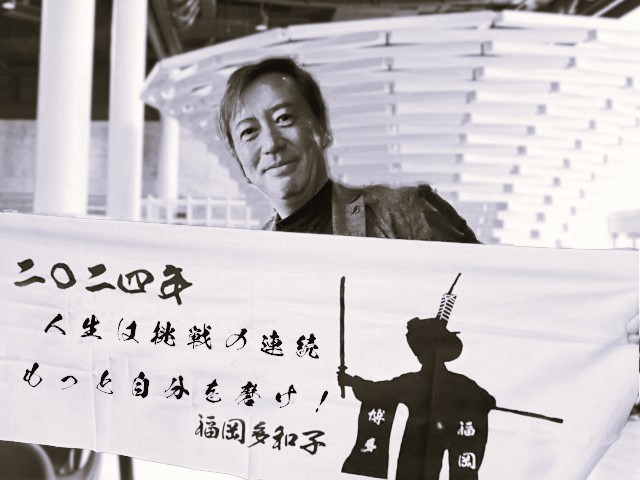 二〇二四年
人生は挑戦の連続
もっと自分を磨け！
福岡多和子
博多
福岡